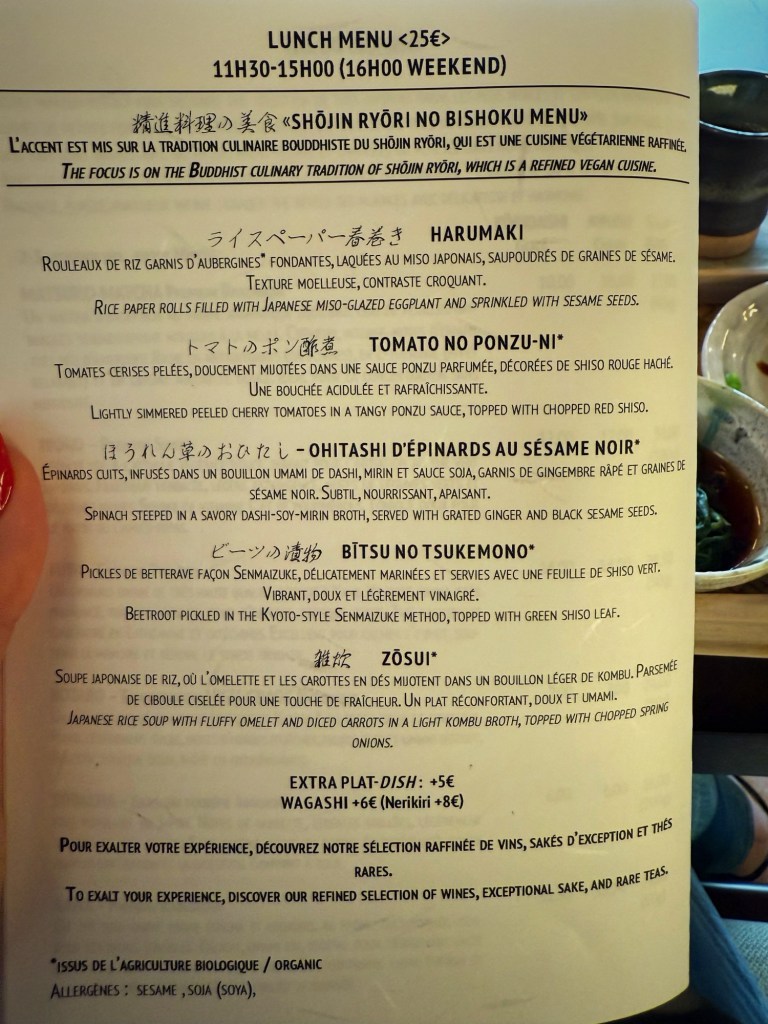 LUNCH MENU <25€>
11H30-15H00 (16H00 WEEKEND)
精進料理の美食 «SHŌJIN RYŌRI NO BISHOKU MENU»
L'ACCENT EST MIS SUR LA TRADITION CULINAIRE BOUDDHISTE DU SHŌJIN RYŌRI, QUI EST UNE CUISINE VÉGÉTARIENNE RAFFINÉE.
THE FOCUS IS ON THE BUDDHIST CULINARY TRADITION OF SHŌJIN RYŌRI, WHICH IS A REFINED VEGAN CUISINE.
ライスペーパー春巻き HARUMAKI
ROULEAUX DE RIZ GARNIS D'AUBERGINES* FONDANTES, LAQUÉES AU MISO JAPONAIS, SAUPOUDRÉS DE GRAINES DE SÉSAME.
TEXTURE MOELLEUSE, CONTRASTE CROQUANT.
RICE PAPER ROLLS FILLED WITH JAPANESE MISO-GLAZED EGGPLANT AND SPRINKLED WITH SESAME SEEDS.
トマトのポン酢煮 TOMATO NO PONZU-NI*
TOMATES CERISES PELÉES, DOUCEMENT MIJOTÉES DANS UNE SAUCE PONZU PARFUMÉE, DÉCORÉES DE SHISO ROUGE HACHÉ.
UNE BOUCHÉE ACIDULÉE ET RAFRAÎCHISSANTE.
LIGHTLY SIMMERED PEELED CHERRY TOMATOES IN A TANGY PONZU SAUCE, TOPPED WITH CHOPPED RED SHISO.
ほうれん草のおひたし – OHITASHI D'ÉPINARDS AU SÉSAME NOIR*
ÉPINARDS CUITS, INFUSÉS DANS UN BOUILLON UMAMI DE DASHI, MIRIN ET SAUCE SOJA, GARNIS DE GINGEMBRE RÂPÉ ET GRAINES DE
SÉSAME NOIR. SUBTIL, NOURRISSANT, APAISANT.
SPINACH STEEPED IN A SAVORY DASHI-SOY-MIRIN BROTH, SERVED WITH GRATED GINGER AND BLACK SESAME SEEDS.
ビーツの漬物 BĪTSU NO TSUKEMONO*
PICKLES DE BETTERAVE FAÇON SENMAIZUKE, DÉLICATEMENT MARINÉES ET SERVIES AVEC UNE FEUILLE DE SHISO VERT.
VIBRANT, DOUX ET LÉGÈREMENT VINAIGRÉ.
BEETROOT PICKLED IN THE KYOTO-STYLE SENMAIZUKE METHOD, TOPPED WITH GREEN SHISO LEAF.
雑炊 ZŌSUI*
SOUPE JAPONAISE DE RIZ, OÙ L'OMELETTE ET LES CAROTTES EN DÉS MIJOTENT DANS UN BOUILLON LÉGER DE KOMBU. PARSEMÉE
DE CIBOULE CISELÉE POUR UNE TOUCHE DE FRAÎCHEUR. UN PLAT RÉCONFORTANT, DOUX ET UMAMI.
JAPANESE RICE SOUP WITH FLUFFY OMELET AND DICED CARROTS IN A LIGHT KOMBU BROTH, TOPPED WITH CHOPPED SPRING
ONIONS.
EXTRA PLAT-DISH : +5€
WAGASHI +6€ (Nerikiri +8€)
POUR EXALTER VOTRE EXPÉRIENCE, DÉCOUVREZ NOTRE SÉLECTION RAFFINÉE DE VINS, SAKÉS D'EXCEPTION ET THÉS
RARES.
TO EXALT YOUR EXPERIENCE, DISCOVER OUR REFINED SELECTION OF WINES, EXCEPTIONAL SAKE, AND RARE TEAS.
*ISSUS DE L'AGRICULTURE BIOLOGIQUE / ORGANIC
ALLERGÈNES : SESAME , SOJA (SOYA),